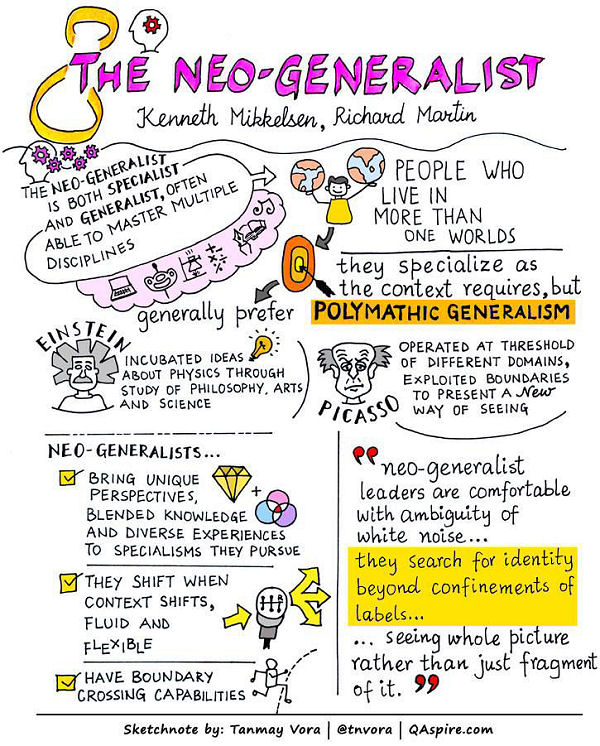 THE NEO-GENERALIST
Kenneth Mikkelsen, Richard Martin
THE NEO-GENERALIST
IS BOTH SPECIALIST
AND GENERALIST, OFTEN
ABLE TO MASTER MULTIPLE
DISCIPLINES
PEOPLE WHO
LIVE IN
MORE THAN
ONE WORLDS
they specialize as
the context requires, but
generally prefer
POLYMATHIC GENERALISM
EINSTEIN
INCUBATED IDEAS
ABOUT PHYSICS THROUGH
STUDY OF PHILOSOPHY, ARTS
AND SCIENCE
PICASSO
OPERATED AT THRESHOLD
OF DIFFERENT DOMAINS,
EXPLOITED BOUNDARIES
TO PRESENT A New
WAY OF SEEING
NEO-GENERALISTS...
BRING UNIQUE
PERSPECTIVES,
BLENDED KNOWLEDGE
AND DIVERSE EXPERIENCES
TO SPECIALISMS THEY PURSUE
THEY SHIFT WHEN
CONTEXT SHIFTS,
FLUID AND
FLEXIBLE
HAVE BOUNDARY
CROSSING CAPABILITIES
"neo-generalist
leaders are comfortable
with ambiguity of
white noise...
they search for identity
beyond confinements of
labels...
... seeing whole picture
rather than just fragment
of it."
Sketchnote by: Tanmay Vora | @tnvora | QAspire.com